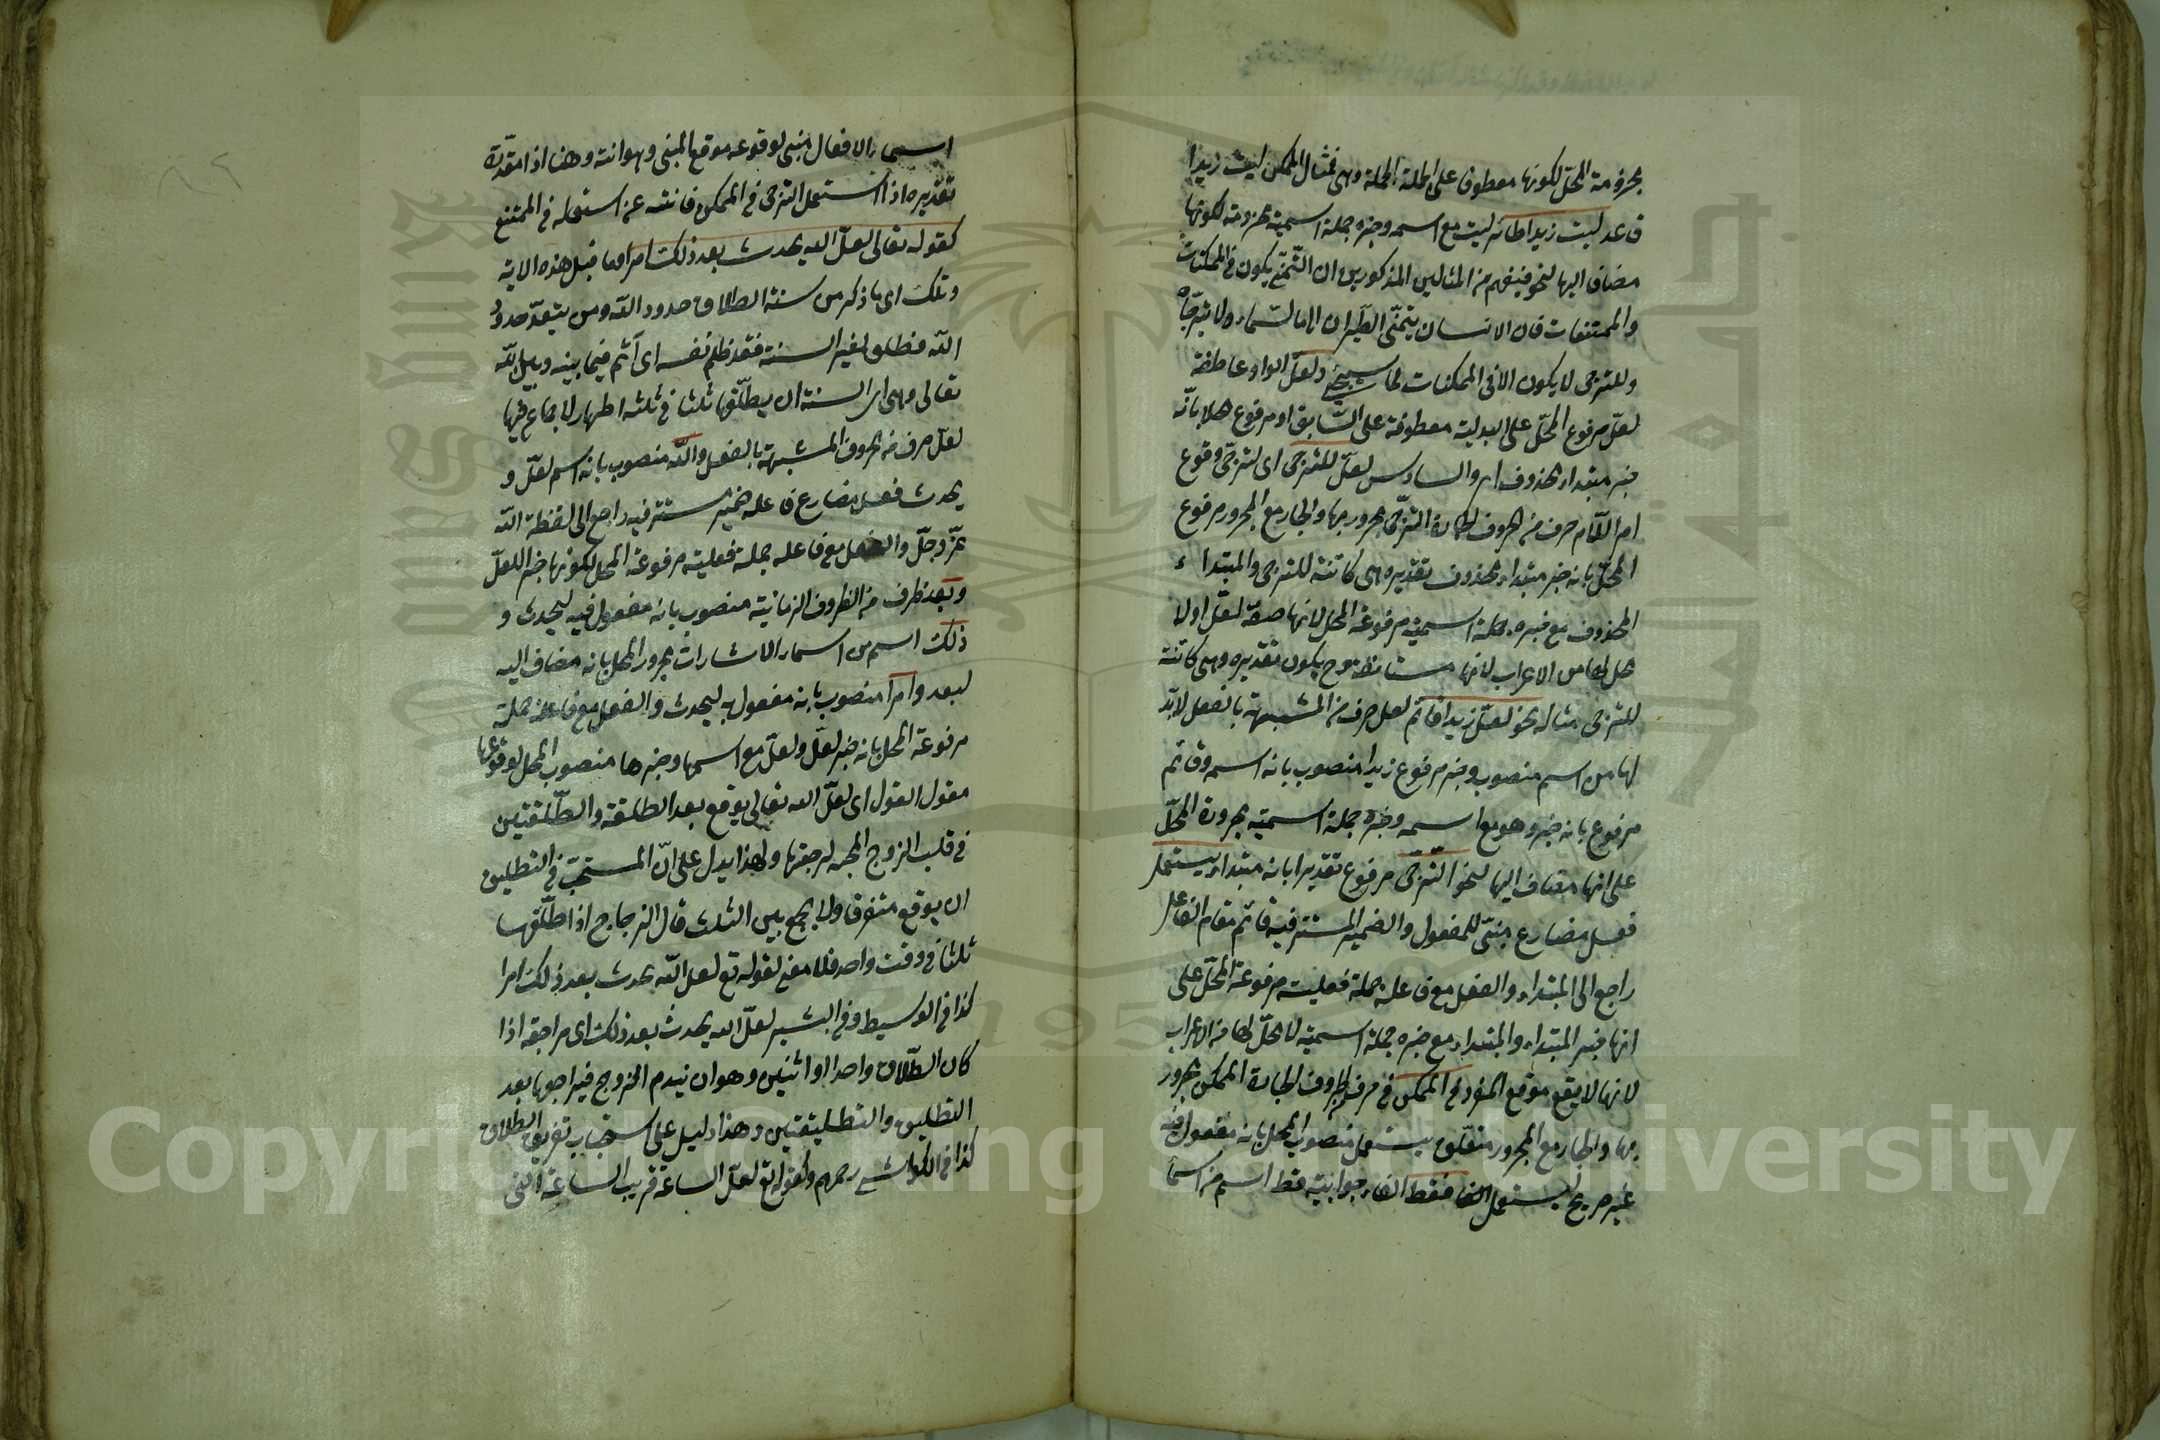 مجرومة المحل لكونها معطوف على الجملة الجملة وهى فمثال الممكن ليت زيدا
قاعد ليت زيدا طائر ليت مع اسمه وخبره جملة اسمية مجرومة لكونها
مضاف اليها لنحو فيفهم من المثالين المذكورين ان التمنّى يكون فى الممكنات
والممتنعات فان الانسان يتمنّى الطيران الى السّماء ولا يترجّاه
وللترجى لا يكون الا فى الممكنات كما سيجئ ولعلّ الواو عاطفة
لعلّ مرفوع المحلّ على البدلية معطوفة على السّابق او مرفوع محلا بانّه
خبر مبتداء محذوف اى والسادس لعلّ للترجى اى لترجّى وقوع
امر اللّام حرف من الحروف الجارة الترجّى مجرور بها والجار مع المجرور مرفوع
المحلّ بانه خبر مبتداء محذوف تقديره وهى كائنة للترجى والمبتداء
المحذوف مع خبره جملة اسمية مرفوعة المحل لانها صفة لعلّ او لا
محل لها من الاعراب لانها مستانفة وح يكون تقديره وهى كائنة
للترجى مثاله نحو لعلّ زيدا قائم لعل حرف من المشبهة بالفعل لابدّ
لها من اسم منصوب وخبر مرفوع زيدا منصوب بانه اسم وقائم
مرفوع بانه خبر وهو مع اسمه وخبره جملة اسميّة مجرورة المحلّ
على انها مضاف اليها لنحو الترجّى مرفوع تقديرا بانه مبتداء يستعمل
فعل مضارع مبنىّ للمفعول والضمير المستتر فيه قائم مقام الفاعل
راجع الى المبتداء والفعل مع فاعله جملة فعلية مرفوعة المحلّ على
انها خبر المبتداء والمبتداء مع خبره جملة اسميّة لا محلّ لها من الاعراب
لانها لا يقع موقع المفرد فى الممكن فى حرف الحروف الجارة الممكن مجرور
بها والجار مع المجرور متعلق بيستعمل منصوب المحل بانه مفعول فيه
غير صريح ليستعمل فقط الفاء جوابية قط اسم من اسما
اسماء الافعال مبنى لوقوعه موقع المبنى وهو انته وهنا اذا مقدرة
تقديره اذا استعمل الترجى فى الممكن فانته عن استعماله فى الممتنع
كقوله تعالى لعلّ الله يحدث بعد ذلك امرا وما قبل هذه الاية
وتلك اى ما ذكر من سنة الطلاق حدود الله ومن يتعدّ حدود
الله فطلق لغير السنة فقد ظلم نفسه اى آثم فيما بينه وبين الله
تعالى وهى اى السنة ان يطلّقها ثلثا فى ثلثة اطهار لا جماع فيها
لعلّ حرف من الحروف المشبهة بالفعل والله منصوب بانه اسم لعلّ و
يحدث فعل مضارع فاعله ضمير مستتر فيه راجع الى لفظة الله
عزّ وجلّ والفعل مع فاعله جملة فعلية مرفوعة المحل لكونها خبر اللعلّ
وبعد ظرف من الظروف الزمانية منصوب بانه مفعول فيه ليحدث و
ذلك اسم من اسماء الاشارات مجرور المحل بانه مضاف اليه
لبعد وامرا منصوب بانه مفعول به ليحدث والفعل مع فاعله جملة
مرفوعة المحل بانه خبر لعلّ ولعلّ مع اسمها وخبرها منصوب المحل لوقوعها
مقول القول اى لعلّ الله تعالى يوقع بعد الطلقة والطّلقتين
فى قلب الزوج المحبه لرجعتها ولهذا يدل على انّ المستحبّ فى التطليق
ان يوقع متفرقا ولا يجمع بين الثلث قال الزجاج اذا طلّقها
ثلثا فى وقت واحد فلا معنى لقوله تع لعل الله يحدث بعد ذلك امرا
كذا فى الوسيط وفى لعلّ الله يحدث بعد ذلك اى مراجعة اذا
كان الطّلاق واحدا او اثنين وهو ان يندم الزوج فيراجعها بعد
التطليق والتطليقتين وهذا دليل على استحباب تفريق الطلاق
كذا فى الكواشى رحمهم ولقوله تع لعلّ الساعة قريب الساعة التى
Copyright © King Saud University
1957